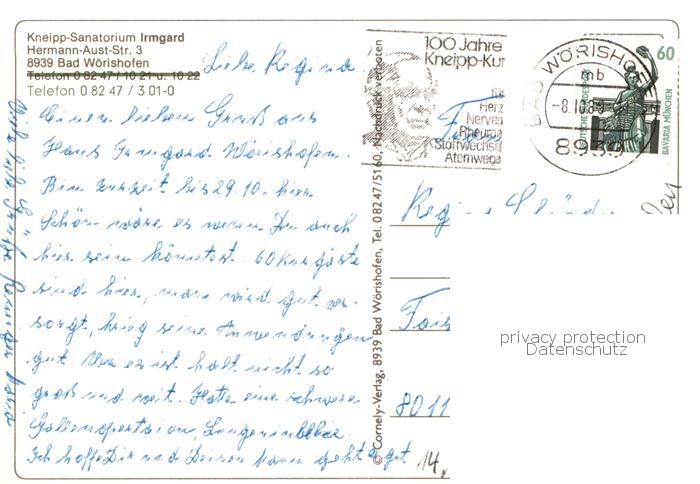 Kneipp-Sanatorium Irmgard
Hermann-Aust-Str. 3
8939 Bad Wörishofen
Telefon 0 82 47 / 10 21 u. 10 22
Telefon 0 82 47 / 3 01-0
Liebe Regina!
Einen lieben Gruß aus
Haus Irmgard Wörishofen.
Bin zurzeit bis 29.10. hier.
Schön wäre es wenn Du auch
hier sein könntest. 60 Kurgäste
sind hier, man wird gut ver-
sorgt, krieg seine Anwendungen
gut. Nur es ist halt nicht so
groß und weit. Hatte eine schwere
Gallenopertation,
Ich hoffe Dir und Deinem Mann geht es gut
Viele liebe Grüße
© Cornely-Verlag, 8939 Bad Wörishofen, Tel. 0 82 47/5160, Nachdruck verboten
100 Jahre
Kneipp-Kur
für
Herz
Nerven
Rheuma
Stoffwechsel
Atemwege
BAD WÖRISHOFEN
mb
-8.10.89
8939
60
DEUTSCHE BUNDESPOST
BAVARIA MÜNCHEN
8011
14.
privacy protection
Datenschutz